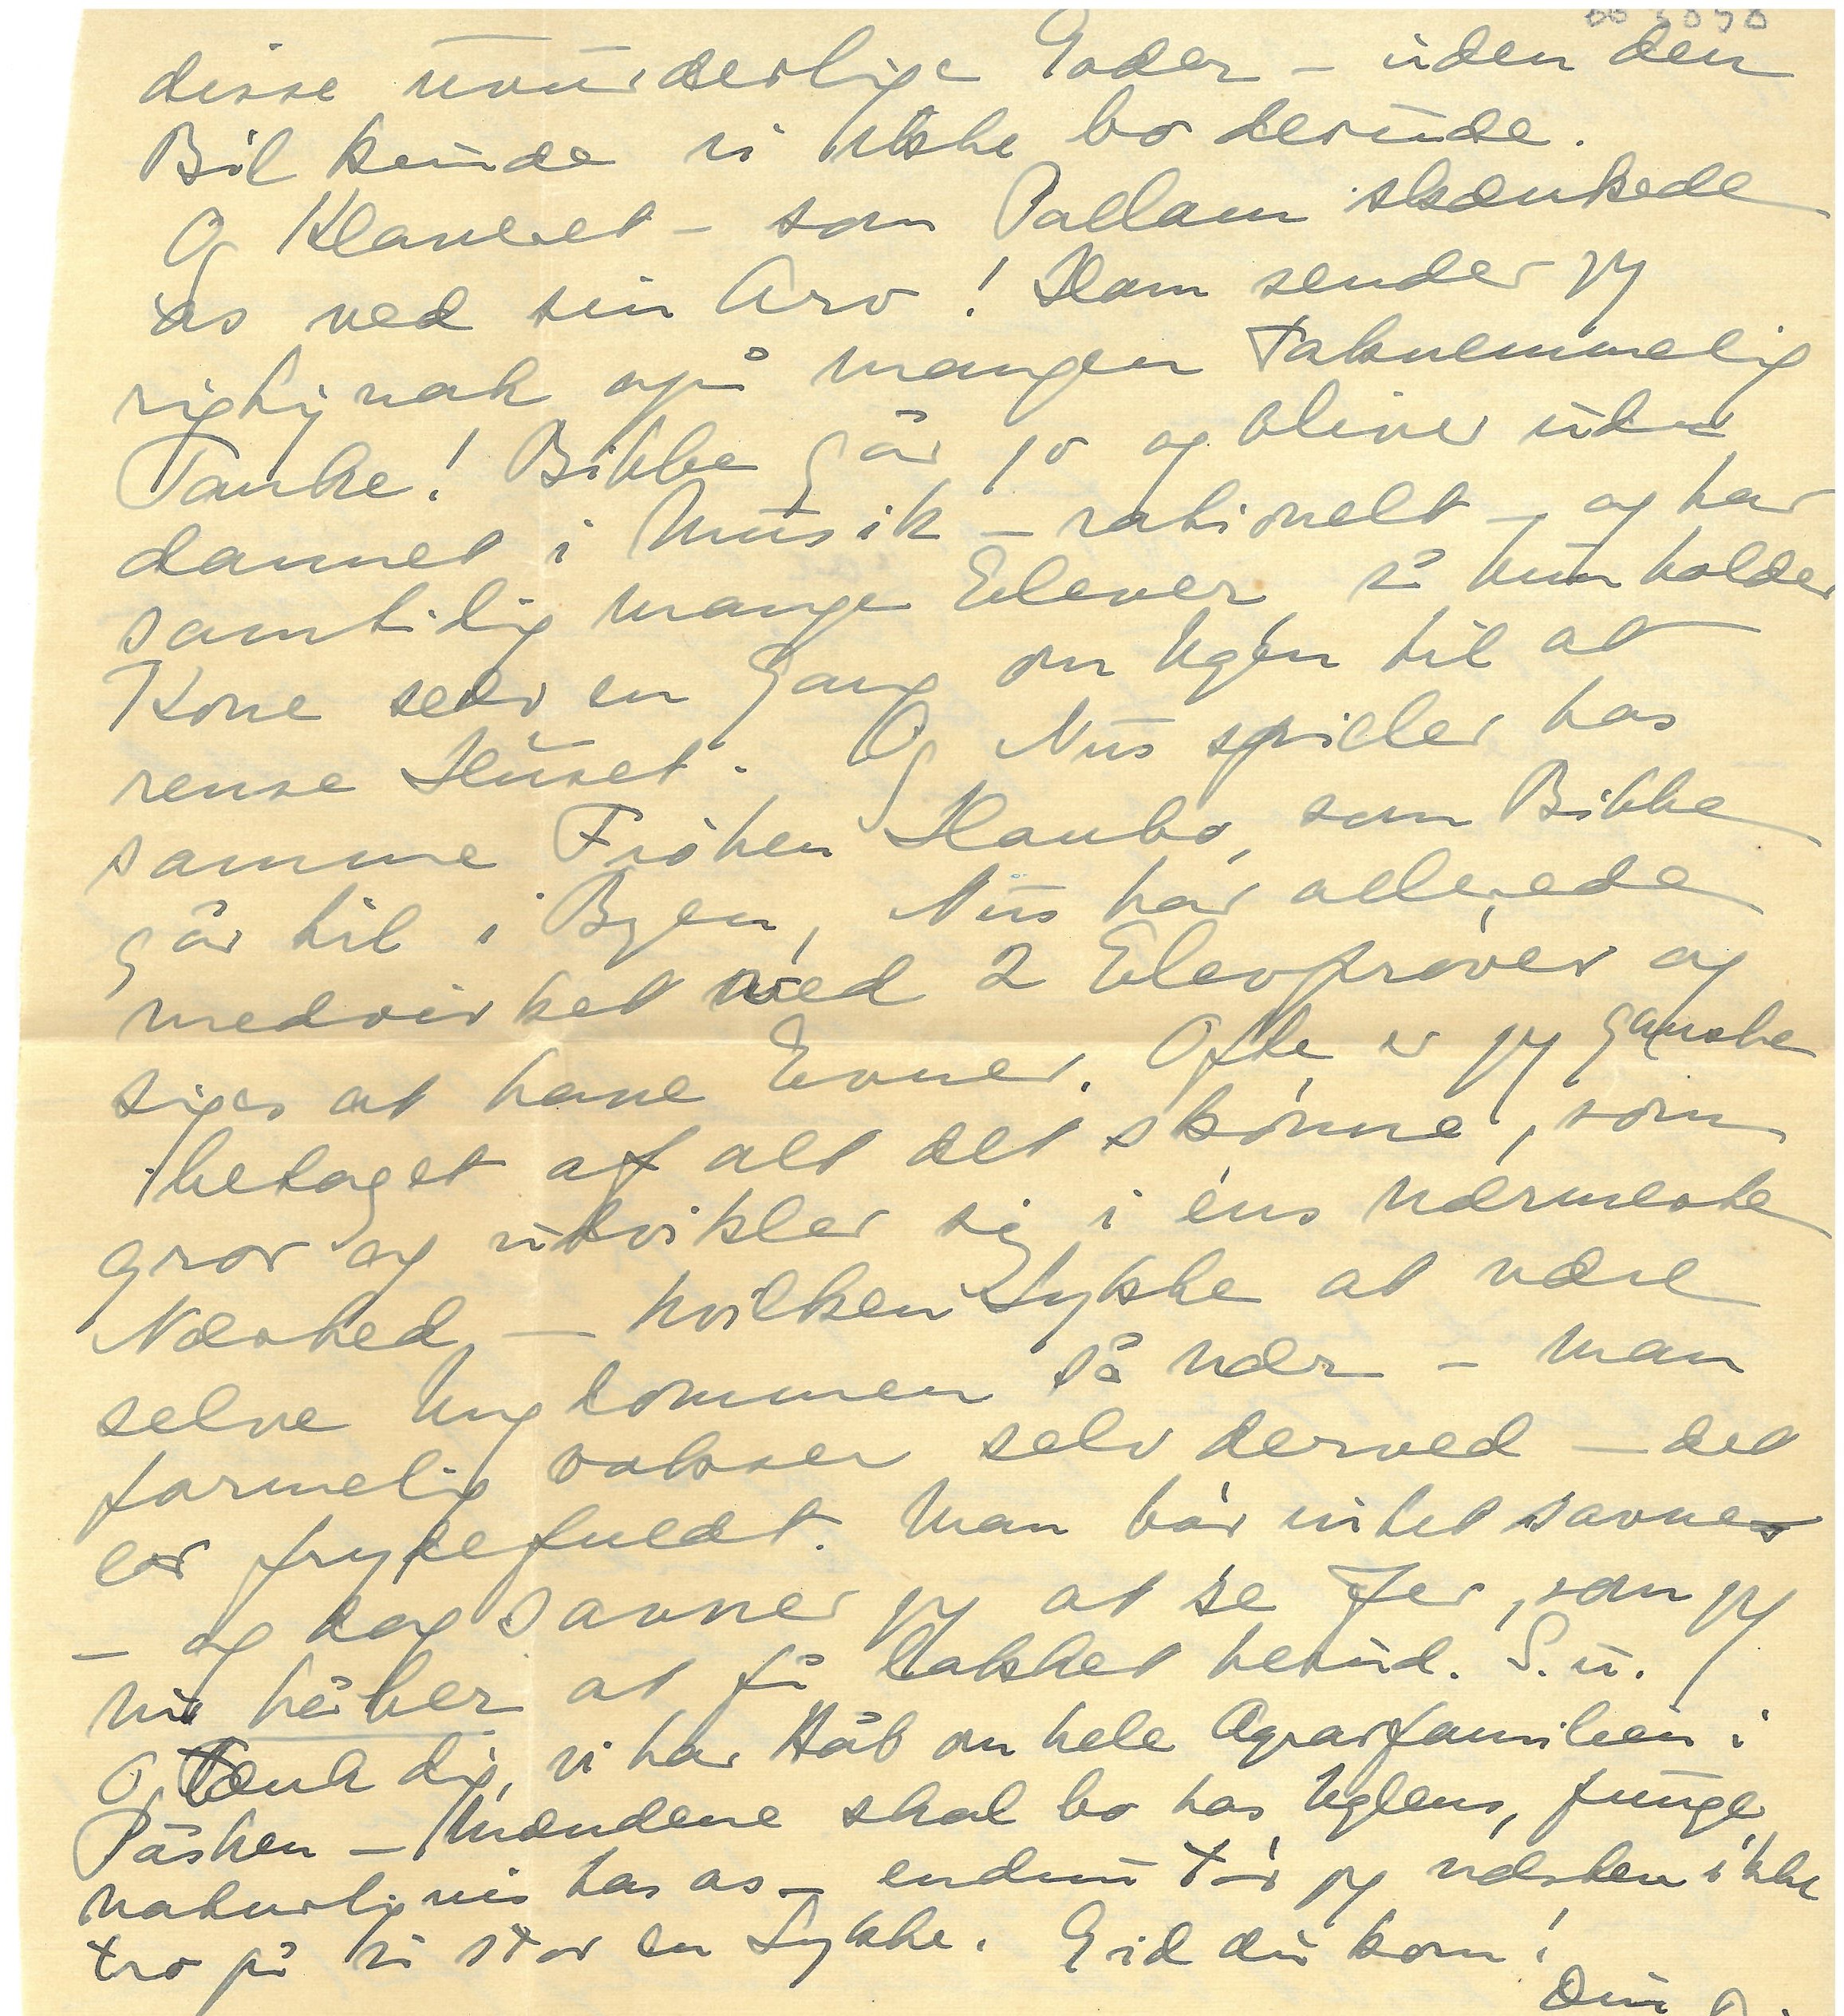 disse uvurderlige Goder – uden den
Bil kunde vi ikke bo derude.
Og Klaveret – som Pallam skænkede
os ved sin Arv! Ham sender jeg
rigtignok også mangen taknemmelig
Tanke! Bibbe går jo og bliver ud-
dannet i Musik – rationelt – og har
samtidig mange Elever, så hun holder
Kone selv en Gang om Ugen til at
rense Huset. Og Nus spiller hos
samme Frøken Haubo, som Bibbe
går til i Byen, Nus har allerede
medvirket ved 2 Elevprøver og
siges at have Evner. Ofte er jeg ganske
betaget af alt det skønne, som
gror og udvikler sig i éns nærmeste
Nærhed, – hvilken Lykke at være
selve Ungdommen så nær – man
formelig vokser selv derved – det
er frydefuldt. Man bør intet savne
– og dog savner jeg at se Jer, som jeg
nu håber at få lokket herud. S.u.
O, Tænk dig, vi har Håb om hele Agrarfamilien i
Påsken – Mændene skal bo hos Uglens, Junge
naturligvis hos os – endnu tør jeg næsten ikke
tro på så stor en Lykke. Gid du kom!
Din